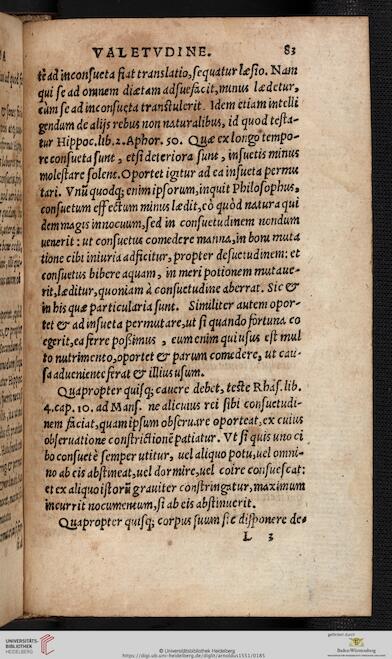 VALETVDINE. 83
tē ad inconsueta fiat translatio, sequatur læsio. Nam
qui se ad omnem diætam adsuefacit, minus læditur,
cùm se ad inconsueta transtulerit. Idem etiam intelli
gendum de alijs rebus non naturalibus, id quod testa-
tur Hippoc. lib. 2. Aphor. 50. Quæ ex longo tempo-
re consueta sunt, etsi deteriora sunt, insuetis minus
molestare solent. Oportet igitur ad ea insueta permu
tari. Vnū quodq; enim ipsorum, inquit Philosophus,
consuetum effectum minus lædit, eò quòd natura qui
dem magis innocuum, sed in consuetudinem nondum
uenerit: ut consuetus comedere manna, in boni muta
tione cibi iniuria adficitur, propter desuetudinem: et
consuetus bibere aquam, in meri potionem mutaue-
rit, læditur, quoniam à consuetudine aberrat. Sic &
in his quæ particularia sunt. Similiter autem opor-
tet & ad insueta permutare, ut si quando fortuna co
egerit, ea ferre possimus, cum enim qui usus est mul
to nutrimento, oportet & parum comedere, ut cau-
sa adueniente ferat & illius usum.
Quapropter quisq; cauere debet, teste Rhas. lib.
4. cap. 10. ad Mans. ne alicuius rei sibi consuetudi-
nem faciat, quam ipsum obseruare oporteat, ex cuius
obseruatione constrictionē patiatur. Vt si quis uno ci
bo consuetè semper utitur, uel aliquo potu, uel omni-
no ab eis abstineat, uel dormire, uel coire consuescat:
et ex aliquo istorū grauiter constringatur, maximum
incurrit nocumentum, si ab eis abstinuerit.
Quapropter quisq; corpus suum sic disponere de-
L 3
UNIVERSITÄTS-
BIBLIOTHEK
HEIDELBERG
© Universitätsbibliothek Heidelberg
https://digi.ub.uni-heidelberg.de/diglit/arnoldus1551/0185
gefördert durch
Baden-Württemberg